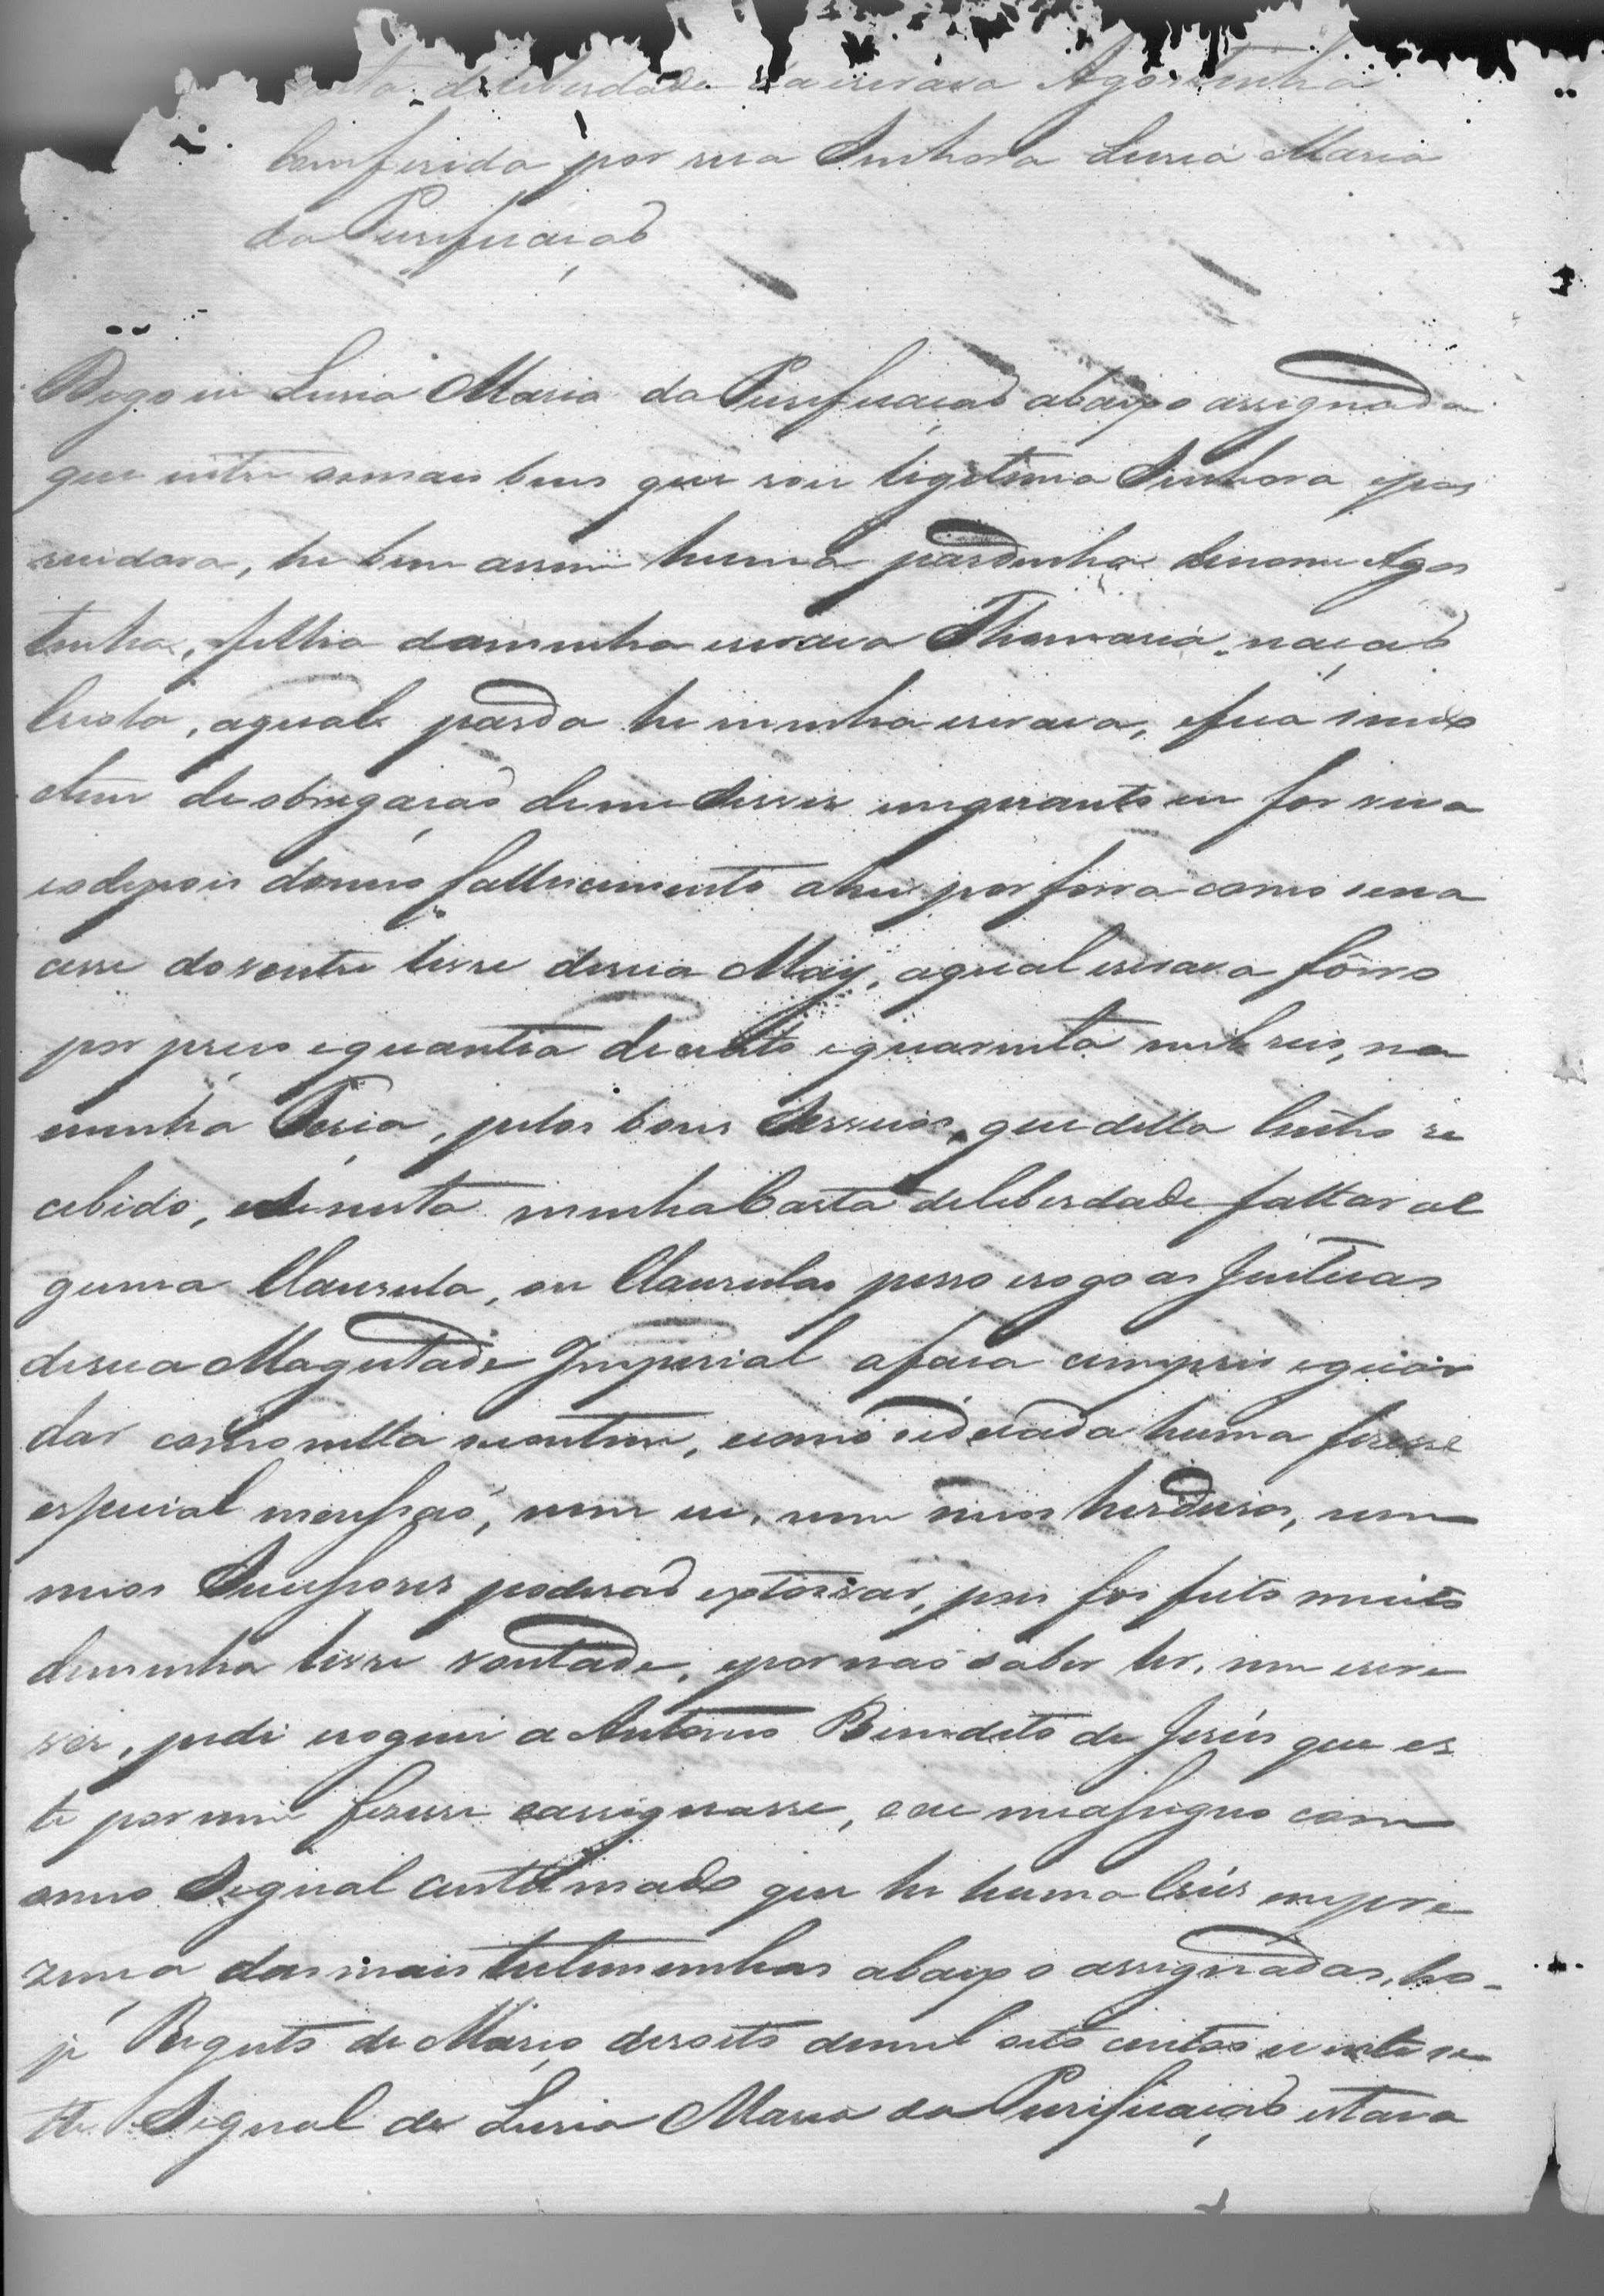 ta de liberdade da escrava Agostinha
Comferida por sua Senhora Luria Maria
da Purificaçaõ
Digo eu Luria Maria da Purificaçaõ abaixo assignada
que entre os mais bens que sou ligitima Senhora epos
suidora, he bem assim huma pardinha denome Agos
tinha, filha daminha escrava Thomasia, naçaõ
Criola, aqual parda he minha escrava, efica sendo
etem de obrigaçaõ deme Servir enquanto eu for viva
edepois domeo fallecimento ahei por forra como sena
cesse doventre livre desua May, aqual escrava fôrro
por preço equantia de cento equarenta mil reis, na
minha Terça, pelos bons Serviços, que della tenho re
cebido, ese nesta minha Carta deliberdade faltar al
guma Clausula, ou Clausulas peço erogo as Justicas
desua Magestade Imperial afaça cumprir eguar
dar como nella secontem, como sidecada huma fizesse
especial mençaõ, nem eu, nem meos herdeiros, nem
meos Sucessores poderaõ extorvar, pois foi feito muito
deminha livre vontade, epornaõ saber ler, nem escre
ver, pedi eroguei a Antonio Benedito de Jesús que es
te por mim fizesse eassignasse, e eu meassigno com
omeo Signal custumado que he huma Crús empre
zença das mais testemunhas abaixo assignadas, ho-
je de Março desoito demil oito centos evinte se
te Signal de Luria Maria da Purificaçaõ estava